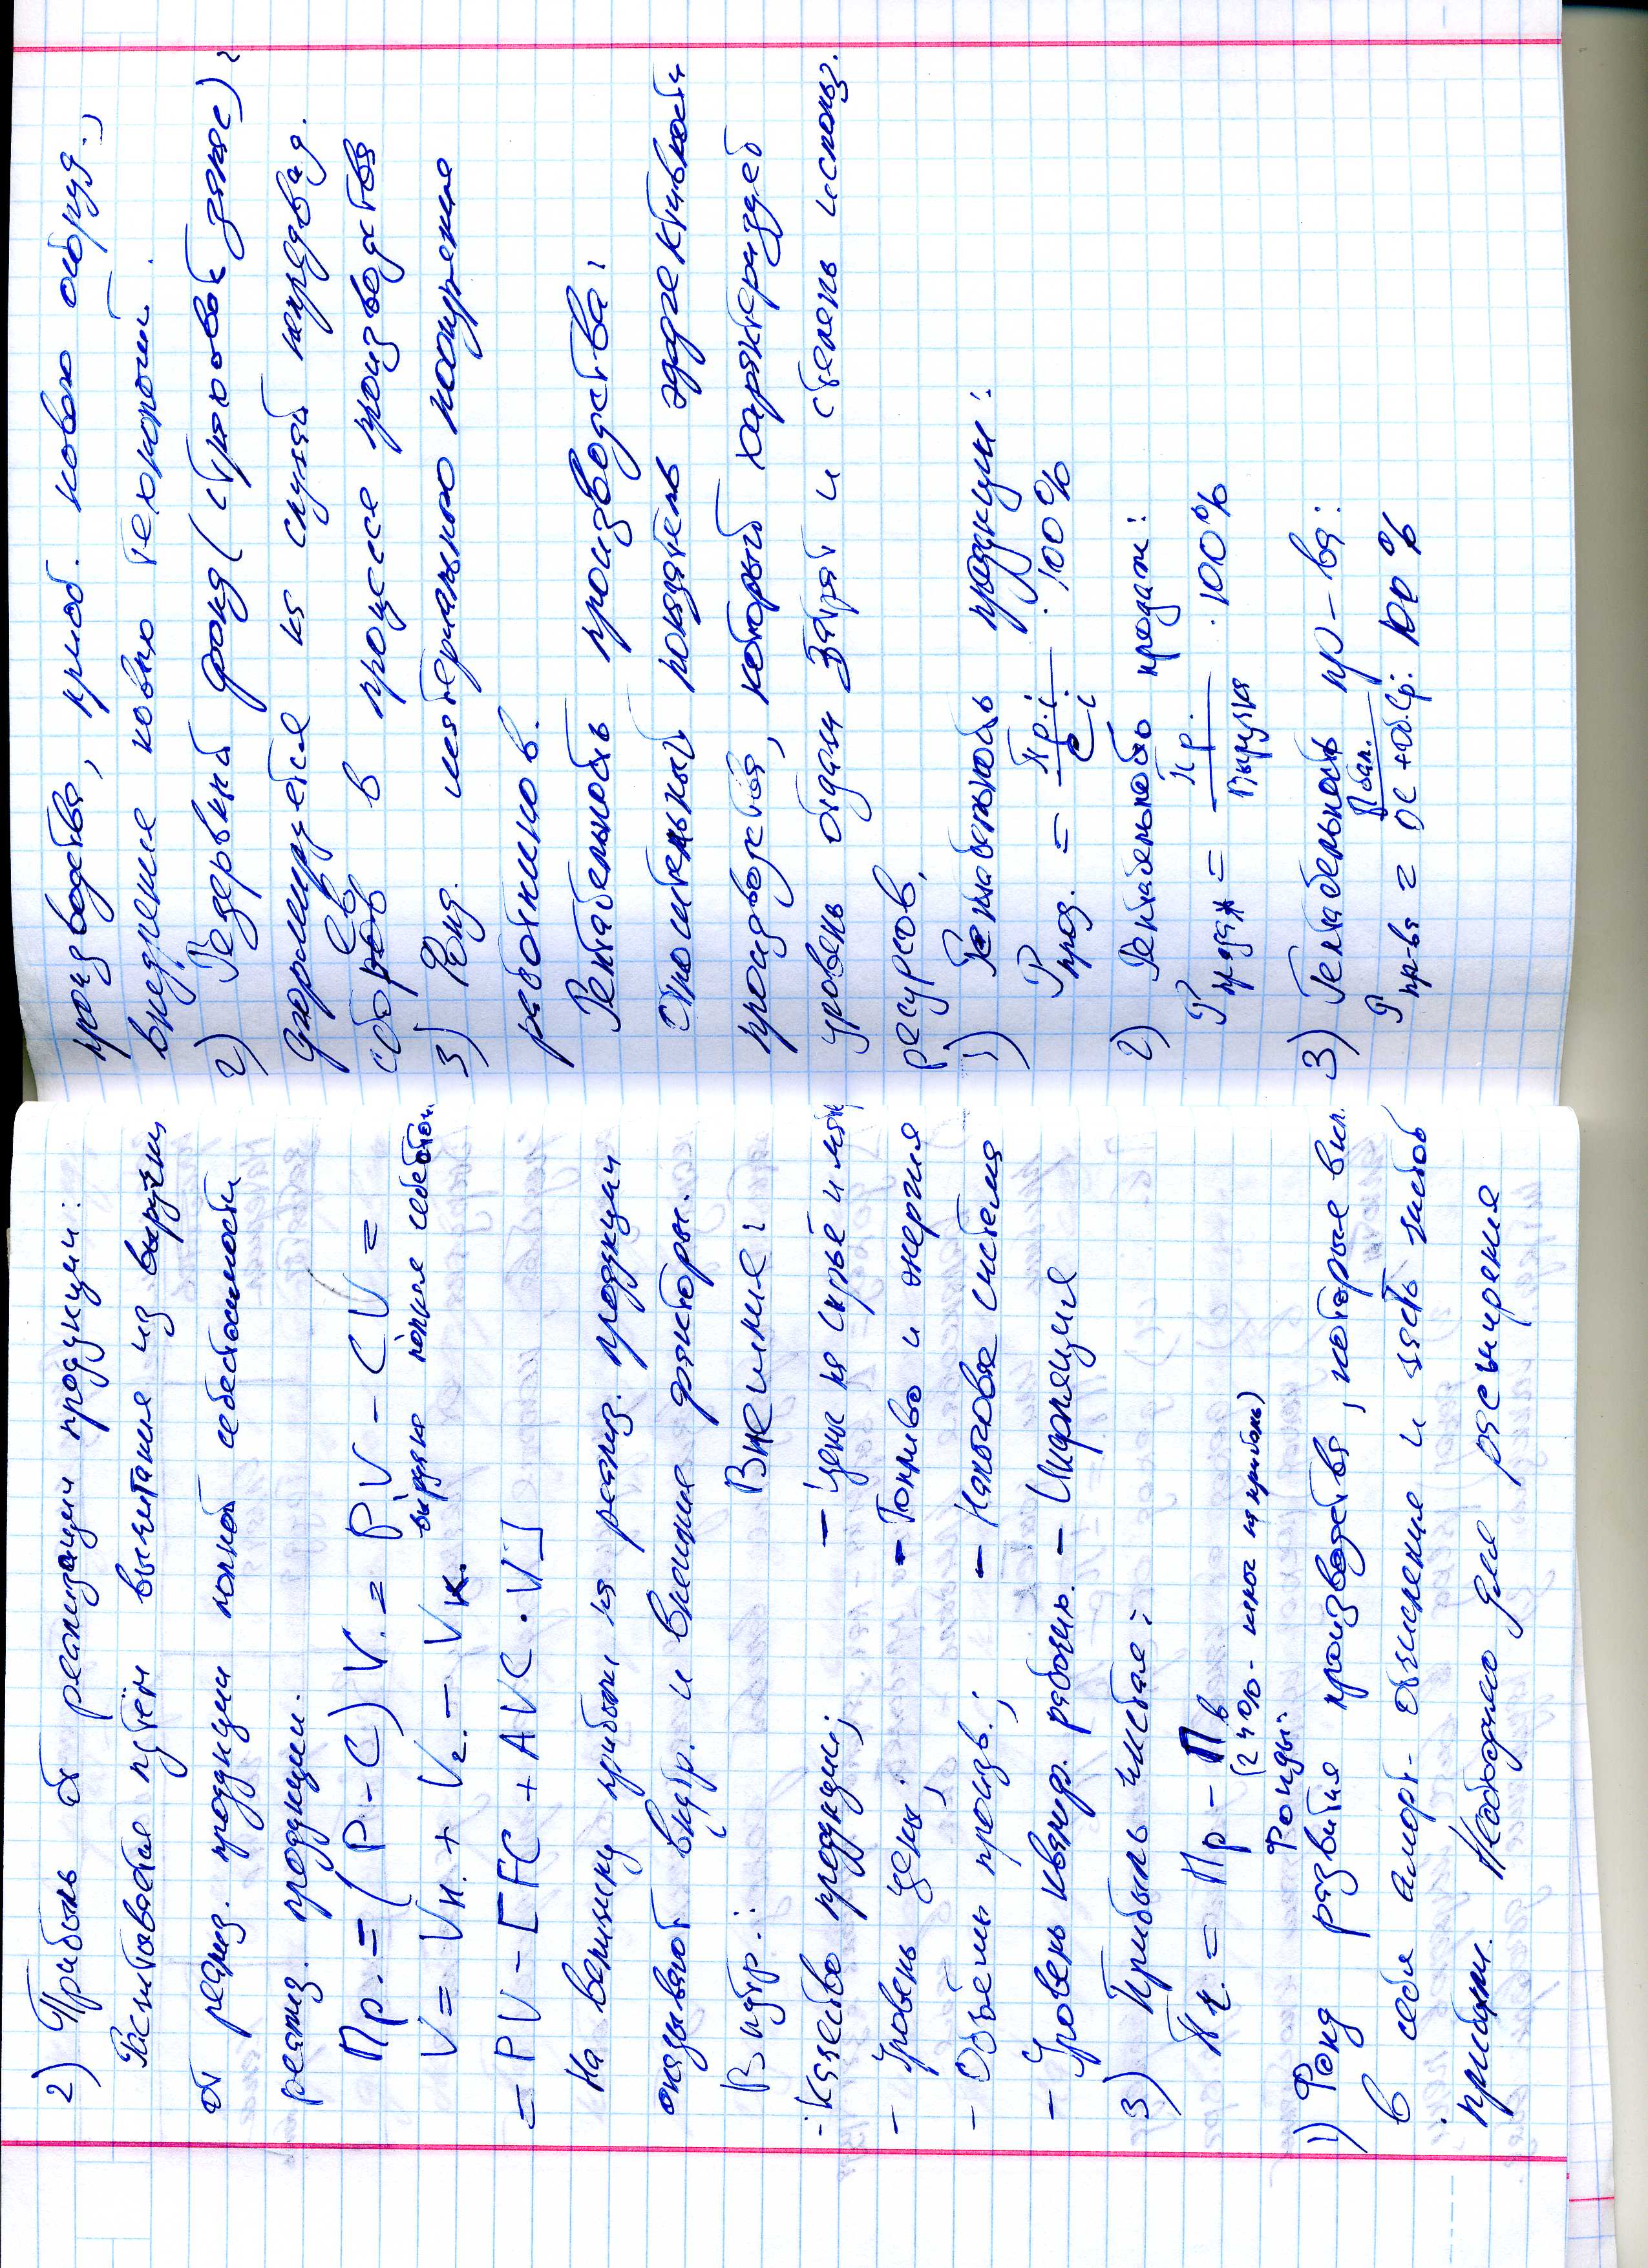 2) Прибыль от реализации продукции:
Рассчитывается путём вычитания из выручки
от реализ. продукции полной себестоимости
реализ. продукции.
Пр. = (P - C) V. = PV - CV =
выручка полная себестоим.
V = Vн. + V2. - Vк.
= PV - [FC + AVC · V]
На величину прибыли на реализ. продукции
оказывают внутр. и внешние факторы.
Внутр.: Внешние:
- Качество продукции; - Цены на сырьё и мат
- Уровень цены; - Топливо и энергия
- Объёмы произв.; - Налоговая система
- Уровень квалиф. рабочих. - Инфляция
3) Прибыль чистая:
Пч. = Пр - Пв
(24% - налог на прибыль)
Фонды:
1) Фонд развития производства, которые вкл.
в себя аморт. отчисления и часть чистой
прибыли. Необходимо для расширения
производства, приоб. нового оборуд.,
внедрение новых технологий.
2) Резервный фонд (страховой запас)
формируется на случай непредвид.
сбоев в процессе производства
3) Фонд. материального поощрения
работников.
Рентабельность производства:
Относительный показатель эффективности
производства, который характеризует
уровень отдачи затрат и степень использ.
ресурсов.
1) Рентабельность продукции:
Pпрод. = Пр.i / Ci · 100%
2) Рентабельность продаж:
Pпродаж = Пр. / Выручка · 100%
3) Рентабельность пр-ва:
Pпр-ва = Пбал. / ОС + Об.Ср. 100%